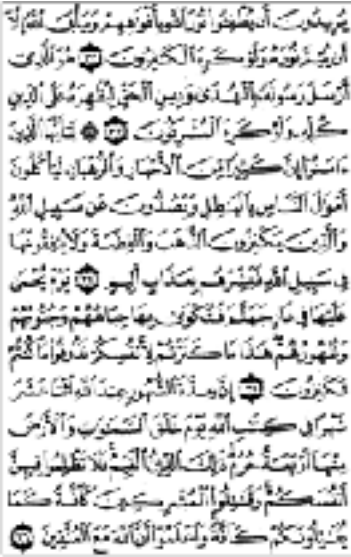 يُرِيدُونَ أَن يُطْفِـُٔوا۟ نُورَ ٱللَّهِ بِأَفْوَٰهِهِمْ وَيَأْبَى ٱللَّهُ إِلَّآ
أَن يُتِمَّ نُورَهُۥ وَلَوْ كَرِهَ ٱلْكَـٰفِرُونَ ٣٢ هُوَ ٱلَّذِىٓ
أَرْسَلَ رَسُولَهُۥ بِٱلْهُدَىٰ وَدِينِ ٱلْحَقِّ لِيُظْهِرَهُۥ عَلَى ٱلدِّينِ
كُلِّهِۦ وَلَوْ كَرِهَ ٱلْمُشْرِكُونَ ٣٣ ۞ يَـٰٓأَيُّهَا ٱلَّذِينَ
ءَامَنُوٓا۟ إِنَّ كَثِيرًا مِّنَ ٱلْأَحْبَارِ وَٱلرُّهْبَانِ لَيَأْكُلُونَ
أَمْوَٰلَ ٱلنَّاسِ بِٱلْبَـٰطِلِ وَيَصُدُّونَ عَن سَبِيلِ ٱللَّهِ
وَٱلَّذِينَ يَكْنِزُونَ ٱلذَّهَبَ وَٱلْفِضَّةَ وَلَا يُنفِقُونَهَا
فِى سَبِيلِ ٱللَّهِ فَبَشِّرْهُم بِعَذَابٍ أَلِيمٍ ٣٤ يَوْمَ يُحْمَىٰ
عَلَيْهَا فِى نَارِ جَهَنَّمَ فَتُكْوَىٰ بِهَا جِبَاهُهُمْ وَجُنُوبُهُمْ
وَظُهُورُهُمْ هَـٰذَا مَا كَنَزْتُمْ لِأَنفُسِكُمْ فَذُوقُوا۟ مَا كُنتُمْ
تَكْنِزُونَ ٣٥ إِنَّ عِدَّةَ ٱلشُّهُورِ عِندَ ٱللَّهِ ٱثْنَا عَشَرَ
شَهْرًا فِى كِتَـٰبِ ٱللَّهِ يَوْمَ خَلَقَ ٱلسَّمَـٰوَٰتِ وَٱلْأَرْضَ
مِنْهَآ أَرْبَعَةٌ حُرُمٌ ذَٰلِكَ ٱلدِّينُ ٱلْقَيِّمُ فَلَا تَظْلِمُوا۟ فِيهِنَّ
أَنفُسَكُمْ وَقَـٰتِلُوا۟ ٱلْمُشْرِكِينَ كَآفَّةً كَمَا
يُقَـٰتِلُونَكُمْ كَآفَّةً وَٱعْلَمُوٓا۟ أَنَّ ٱللَّهَ مَعَ ٱلْمُتَّقِينَ ٣٦